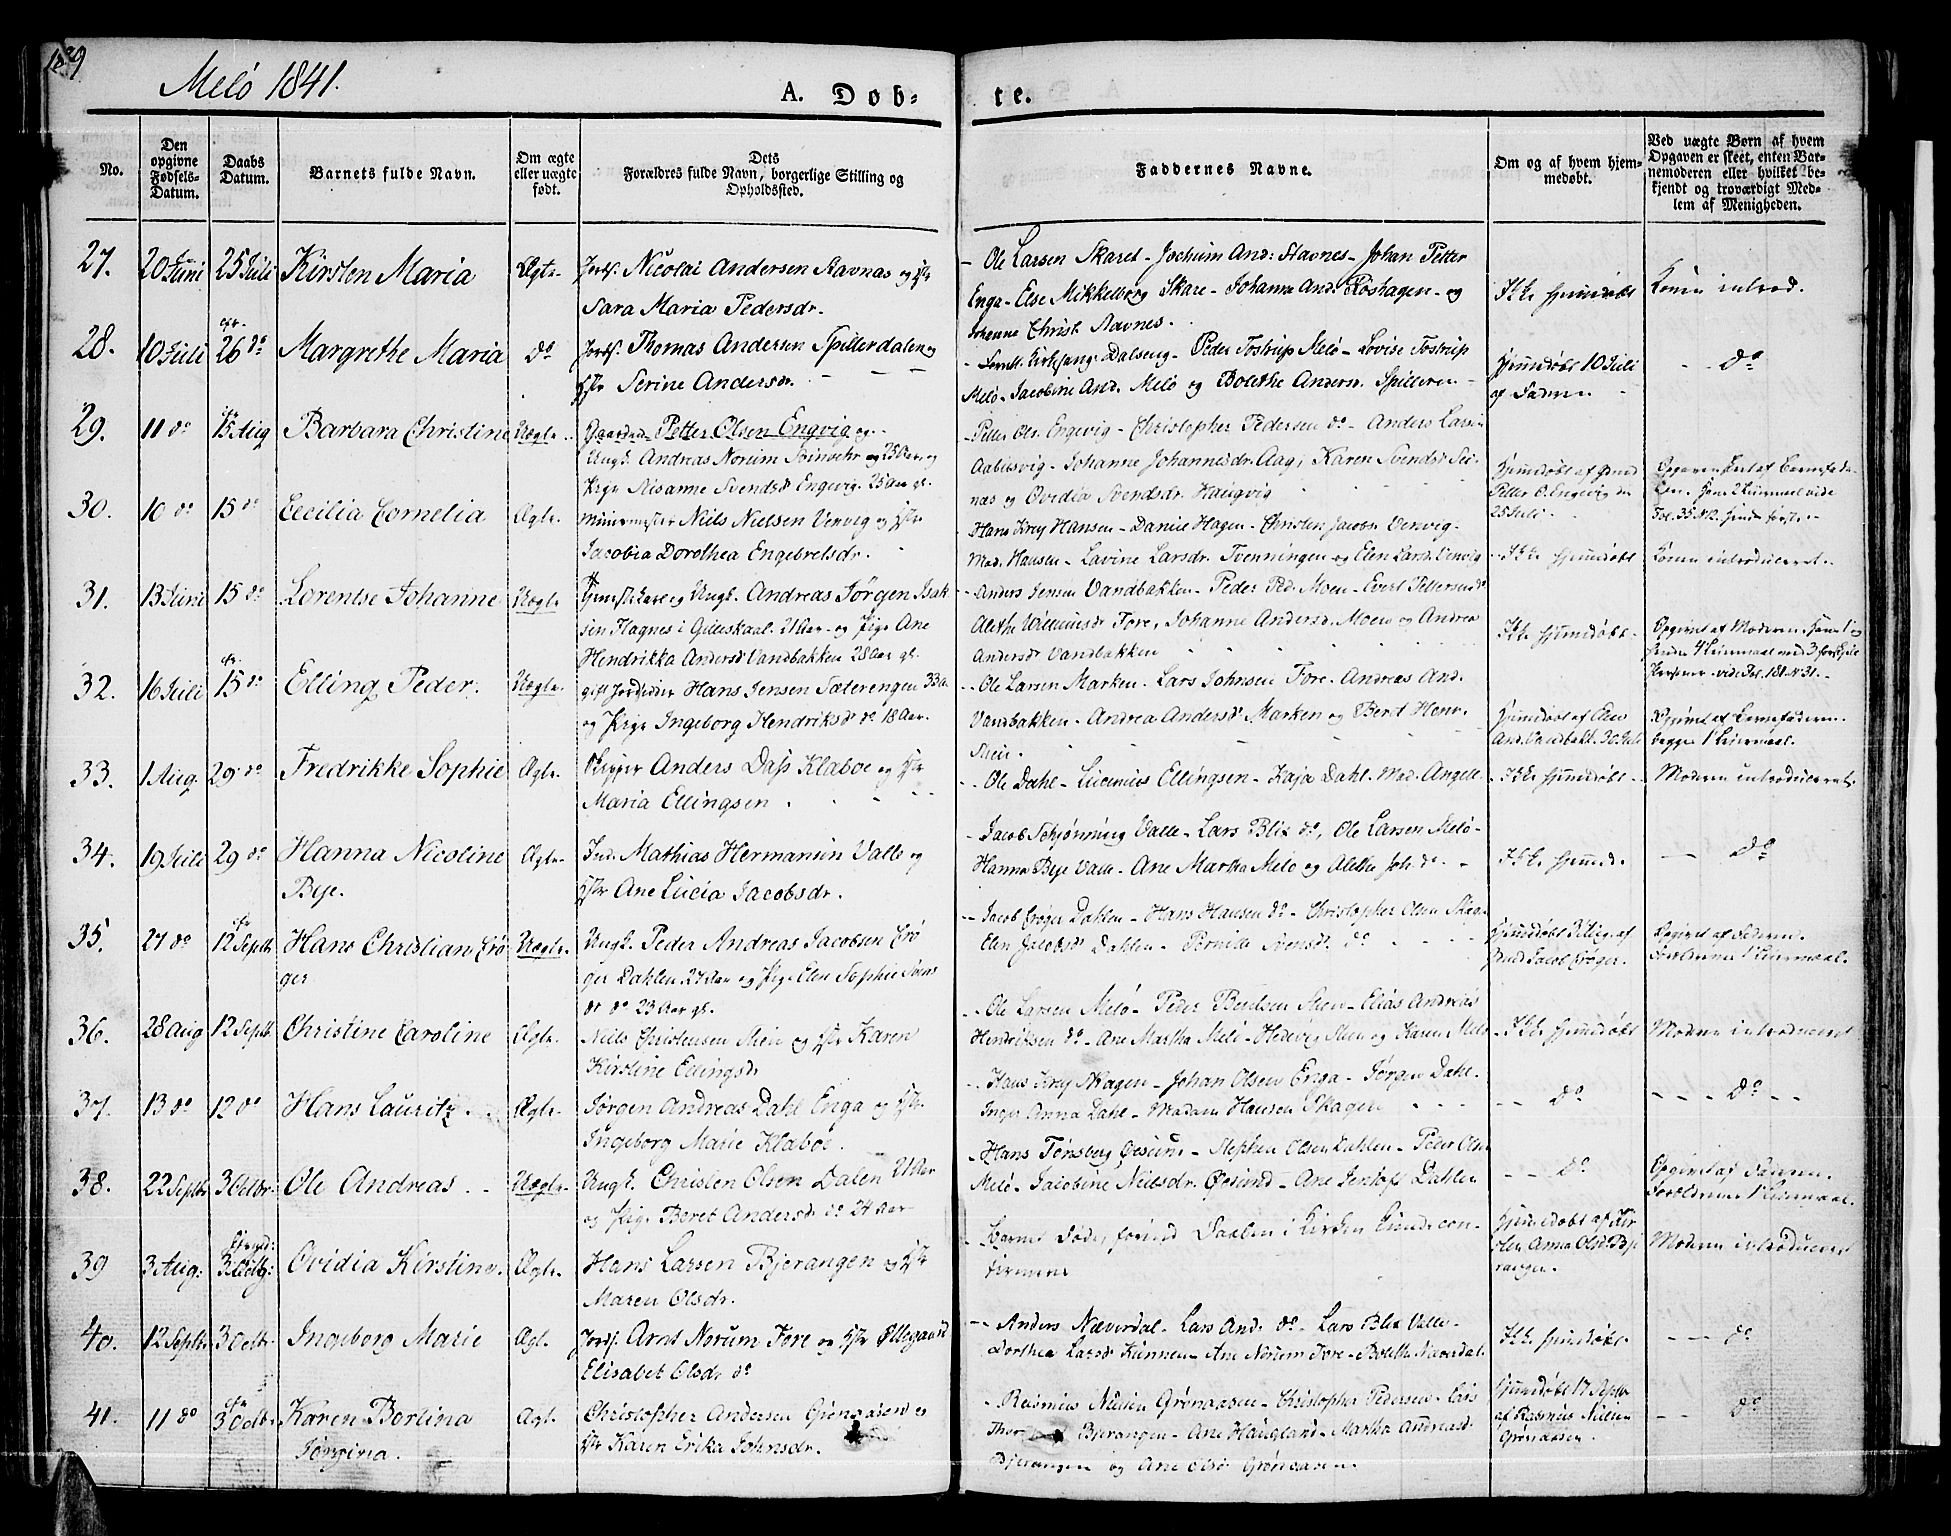 189
Melö 1841.
A. Döb-
te.
No.
Den opgivne Fødsels-Datum.
Daabs Datum.
Barnets fulde Navn.
Om ægte eller uægte født.
Dets Forældres fulde Navn, borgerlige Stilling og Opholdssted.
Faddernes Navne.
Om og af hvem hjemmedøbt.
Ved uægte Børn af hvem Opgaven er skeet, enten Barnemoderen eller hvilket bekjendt og troværdigt Medlem af Menigheden.
27. 20 Juni 25 Juli Kirsten Maria Ægte.
Nicolai Andersen Stavnæs og Hstr
Sara Maria Pedersdr.
- Ole Larsen Skaret - Jochum And: Havnes - Johan Petter
Enga - Else Mikkelborg Skare - Johanna And. Roshagen - og
Johanne Christ. Navnes.
Ikke hjemedøbt
Konen introd.
28. 10 Juli 26 do Margrethe Maria do
Thomas Andersen Spilderdalen og
Hstr Serine Andersdr.
Dalseng - Peder Tostrup Melö - Lovise Tostrup
Melö - Jacobine And. Melö og Bolethe Andersd. Spilderen -
Hjemedøbt 10 Juli
af Faderen
- - do
29. 11 do 15 Aug Barbara Christine Uægte.
Petter Olsen Engvig og
Ungk. Andreas Norum Steinvehr og 23 Aar og
Pige Nisanne Svendsdr Engevig 25 Aar gl.
- Petter Ols. Engevig - Christopher Pedersen do - Anders Larsen
Johanne Johannesdr. Aag, Karen Svendsdr
nas og Ovidia Svendsdr. Haugvig
Hjemedøbt af
Petter O. Engevig den
25 Juli.
30. 10 do 15 do Cecilia Cornelia Ægte.
Niels Nielsen Venvig og Hstr
Jacobia Dorothea Engebretsdr.
Hans Krey Hansen - Daniel Hagen - Christen Jacobs. Venvig -
Mad. Hansen - Lavine Larsdr. Tvenningen og Elen Larsd. Venvig
- Ikke hjemedøbt
Konen introduceret.
31. 13 Juni 15 do Lorentse Johanne Uægte
og Ungk. Andreas Jørgen Isak
sen Flagnes i Gilleskaal. 21 Aar - og Pige Ane
Hendrikka Andersdr Vandbakken 28 Aar gl.
- Anders Jensen Vandbakken - Peder Ped. Moen - Evert Pettersen do
Alethe Willumsdr Fore, Johanne Andersd. Moen og Andrea
Andersdr Vandbakken
Ikke hjemedøbt.
Opgivet af Moderen. Hans 1 og
hendes 4 Leiermaal med 3 forskjell.
Personer. vide Fol. 181 N 31.
32. 16 Juli 15 do Elling Peder. Uægte.
gift Hans Jensen Sæterengen 33 A.
og Pige Ingeborg Hendriksdr do 18 Aar.
- Ole Larsen Marken - Lars Johnsen Fore. Andreas And.
Vandbakken - Andrea Andersdr Marken og Beret Henr.
Hjemedøbt af Elen
And. Vandbakk. 30 Juli
Opgivet af Barnefaderen.
begges 1 Leiermaal.
33. 1 Aug 29 do Fredrikke Sophie Ægte.
Skipper Anders Dass Klaboe og Hstr
Maria Ellingsen
- Ole Dahl - Lucinius Ellingsen - Kaja Dahl. Mad. Angell
- Ikke hjemedøbt -
Moderen introduceret.
34. 19 Juli 29 do Hanna Nicoline
Beje.
Ægte.
Ind. Mathias Hermansen Valle og
Hstr Ane Lucia Jacobsdr.
- Jacob Schjønning Valle - Lars Blix do, Ole Larsen Melö -
Hanna Beje Valle - Ane Martha Melö og Alethe Joh. do -
Ikke hjemd.
- - do
35. 27 do 12 Septbr Hans Christian Crö
ger
Uægte.
Ungk. Peder Andreas Jacobsen Crö
ger Dahlen 27 Aar og Pige Elen Sophie Svens
dr do 23 Aar gl.
- Jacob Crøger Dahlen - Hans Hansen do - Christopher Olsen
Elen Jacobsdr Dahlen - Pernille Svensdr. do
Jacob Crøger.
Opgivet af Faderen.
Forældrenes 1 Leiermaal.
36. 28 Aug 12 Septbr Christine Caroline Ægte.
Niels Christensen Steen og Hstr Karen
Kirstine Ellingsdr
- Ole Larsen Melö - Peder Bendsen Steen - Elias Andreas
Hendriksen do - Ane Martha Melö - Hedevig Steen og Karen Melö
- Ikke hjemedøbt
Moderen introduceret
37. 13 do 12 do Hans Lauritz Ægte.
Jørgen Andreas Dahl Enga og Hstr.
Ingeborg Marie Klaboe.
- Hans Krey Skagen - Johan Olsen Enga - Jørgen Dahl.
Inger Anna Dahl - Madam Hansen Skagen
- - do
- - - do - -
38. 22 Septbr 3 Octbr Ole Andreas Uægte.
Ungk. Christen Olsen Dalen 21 Aar
og Pige Beret Andersdr do 24 Aar
- Hans Tønsberg Øesund - Stephen Olsen Dahlen - Peder Olsen
Melö - Jacobine Nielsdr. Øesund - Ane Jentoft Dahlen
- - do
Opgivet af Faderen.
Forældrenes 1 Leiermaal.
39 3 Aug: 3 Octbr: Ovidia Kirstine. Ægte.
Hans Larsen Bjerangen og Hstr
Maren Olsdr.
Barnet døde, forend Daaben i Kirken kunde con-
firmeres
Hjemedøbt af
Anna Olsd. Bje
rangen.
Moderen introduceret
40. 12 Septbr 3 Octbr Ingeborg Marie Ægte.
Arnt Norum Fore og Hstr Øllegaard
Elisabet Olsdr do
- Anders Næverdal - Lars And. do - Lars Blix Valle
Dorthea Larsdr Kunnen - Ane Norum Fore - Bolethe Næverdal
Ikke hjemedøbt.
- - - do
41. 11 do 3 Octbr Karen Bertina
Jørgina.
Ægte.
Christopher Andersen Grønaasen og
Hstr Karen Erika Johnsdr.
- Rasmus Nielsen Grønaasen - Christopher Pedersen - Lars
Thor Bjerangen - Ane Haugland - Martha Andreasd.
Bjerangen og Ane Olsdr Grønaasen.
Hjemedøbt 17 Septbr
af Rasmus Nielsen
Grønaasen.
- - do